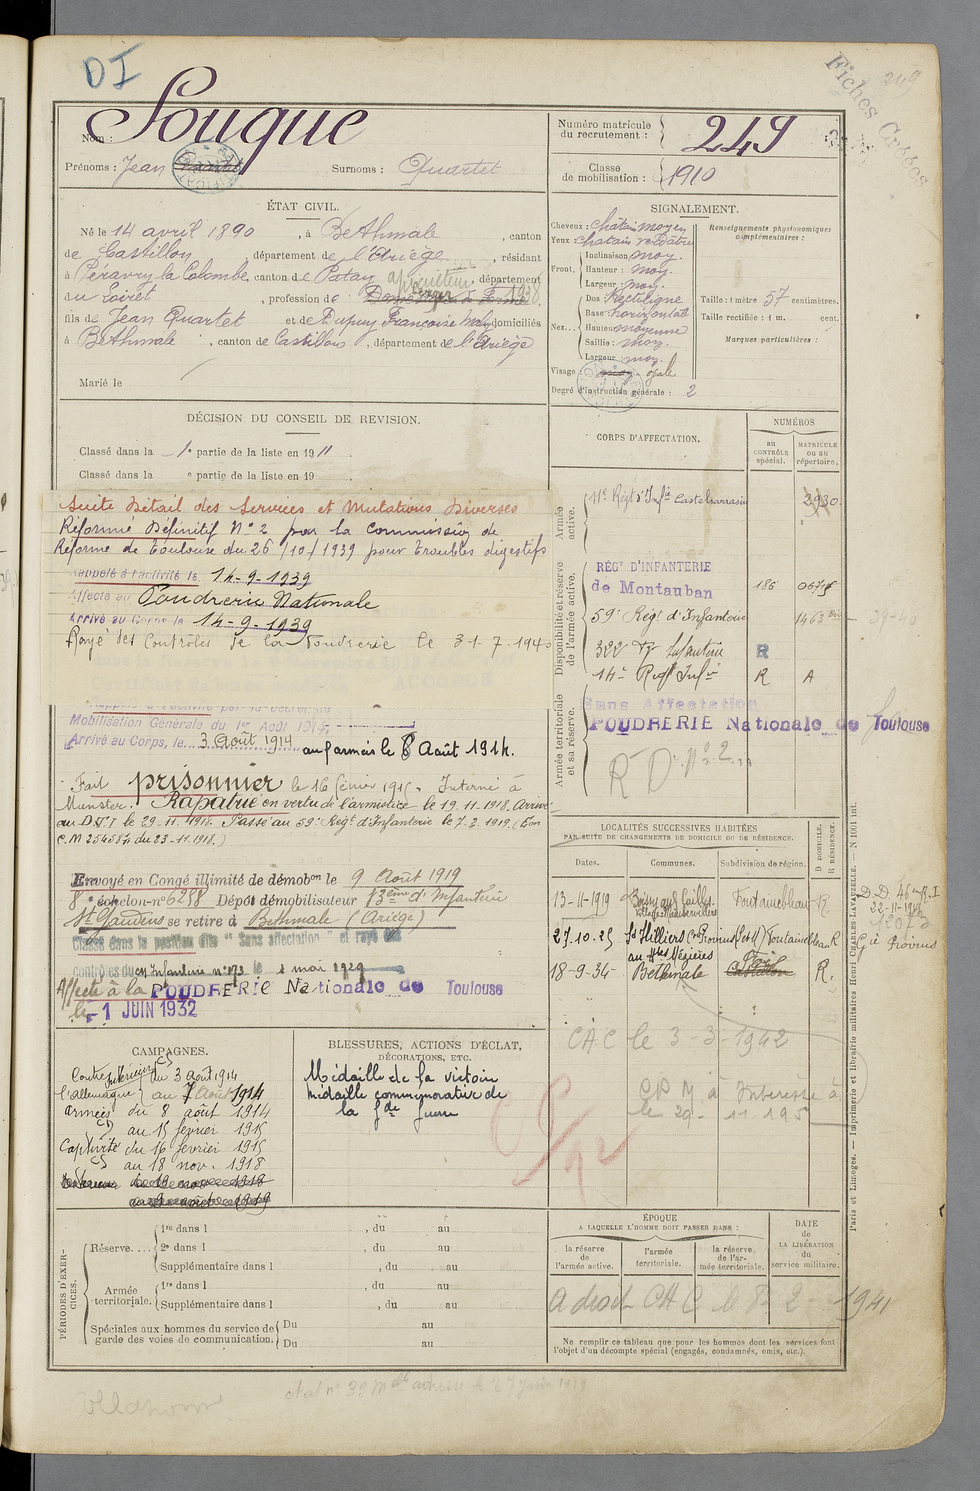 DI
Fiches Croses
249
Nom : Souque
Prénoms : Jean
Surnoms : Quartet
Numéro matricule du recrutement : 249
Classe de mobilisation : 1910
ÉTAT CIVIL.
Né le 14 avril 1890 , à Bethmale , canton
de Castillon département de l'Ariège , résidant
à Péravy la Colombe, canton de Patay , département
du Loiret , profession de
fils de Jean Quartet et de Dupuy Françoise domiciliés
à Bethmale , canton de Castillon , département de l'Ariège
Marié le
SIGNALEMENT.
Cheveux : châtain moyen
Yeux chatain verdâtre
Front. Inclinaison moy.
Hauteur : moy.
Largeur : moy.
Nez. Dos Rectiligne
Base horizontale
Hauteur moyenne
Saillie : moy.
Largeur : moy.
Visage : moy ovale
Degré d'instruction générale : 2
Renseignements physionomiques
complémentaires :
Taille : 1 mètre 57 centimètres.
Taille rectifiée : 1 m. cent.
Marques particulières :
DÉCISION DU CONSEIL DE REVISION.
Classé dans la 1e partie de la liste en 1911
Classé dans la e partie de la liste en 19
Suite Détail des Services et Mutations Diverses
Réformé Définitif N° 2 par la Commission de
Réforme de Toulouse du 26/10/1939 pour troubles digestifs
Rappelé à l'activité le 14-9-1939
Affecté au Poudrerie Nationale
Arrivé au Corps le 14-9-1939
Rayé des Contrôles de la Poudrerie le 31-7-1940
Mobilisation Générale du 1er Août 1914.
Arrivé au Corps, le 3 Août 1914 aux armées le 8 Août 1914.
Fait prisonnier le 16 février 1915. Interné à
Munster. Rapatrié en vertu de l'armistice le 19.11.1918. Arrivé
au le 29-11-1918. Passé au 59e Régt d'Infanterie le 7.2.1919. (Bon
C.M du 23-11-1918.)
Envoyé en Congé illimité de démobon le 9 Août 1919
8e échelon-n° 6258 Dépôt démobilisateur 83ème d'Infanterie
St Gaudens se retire à Bethmale (Ariège)
Classé dans la position dite "Sans affectation" et rayé des
contrôles du CM Infanterie n° 173 le 1 mai 1929
Affecté à la POUDRERIE Nationale de Toulouse
le 1 JUIN 1932
CORPS D'AFFECTATION.
NUMÉROS
au contrôle spécial.
MATRICULE ou au répertoire.
Armée active.
11e Régt d'Infie Castelsarrasin 2930
Disponibilité et réserve de l'armée active.
RÉGT D'INFANTERIE
de Montauban 186
59e Régt d'Infanterie 1463
322 Rt Infanterie R
14e Régt Infie R A
39-40
Armée territoriale et sa réserve.
Sans Affectation
POUDRERIE Nationale de Toulouse
R D N° 2
LOCALITÉS SUCCESSIVES HABITÉES
PAR SUITE DE CHANGEMENTS DE DOMICILE OU DE RÉSIDENCE.
Dates. Communes. Subdivision de région. D DOMICILE. R RÉSIDENCE.
13-11-1919 Fontainebleau R
27.10.25 St Hilliers Con Provins (S et M) Fontainebleau R
18-9-34 Bethmale R.
22-11-19
Gie Provins
CAC le 3-3-1942
CAMPAGNES.
Contre Intérieur CS du 3 août 1914
l'allemagne au 7 Août 1914
armées du 8 août 1914
CS au 15 février 1915
Captivité du 16 février 1915
CS au 18 nov. 1918
BLESSURES, ACTIONS D'ÉCLAT,
DÉCORATIONS, ETC.
Médaille de la victoire
médaille commemorative de
la Gde Guerre
PÉRIODES D'EXERCICES.
Réserve....
1re dans l , du au
2e dans l , du au
Supplémentaire dans l , du au
Armée territoriale.
1re dans l , du au
Supplémentaire dans l , du au
Spéciales aux hommes du service de garde des voies de communication.
Du au
Du au
ÉPOQUE
A LAQUELLE L'HOMME DOIT PASSER DANS :
la réserve de l'armée active.
l'armée territoriale.
la réserve de l'armée territoriale.
DATE DE LA LIBÉRATION du service militaire.
a droit CAC le 8 2 1941
Ne remplir ce tableau que pour les hommes dont les services font
l'objet d'un décompte spécial (engagés, condamnés, omis, etc.).
Paris et Limoges. — Imprimerie et librairie militaires Henri CHARLES-LAVAUZELLE. — N 1001 int.